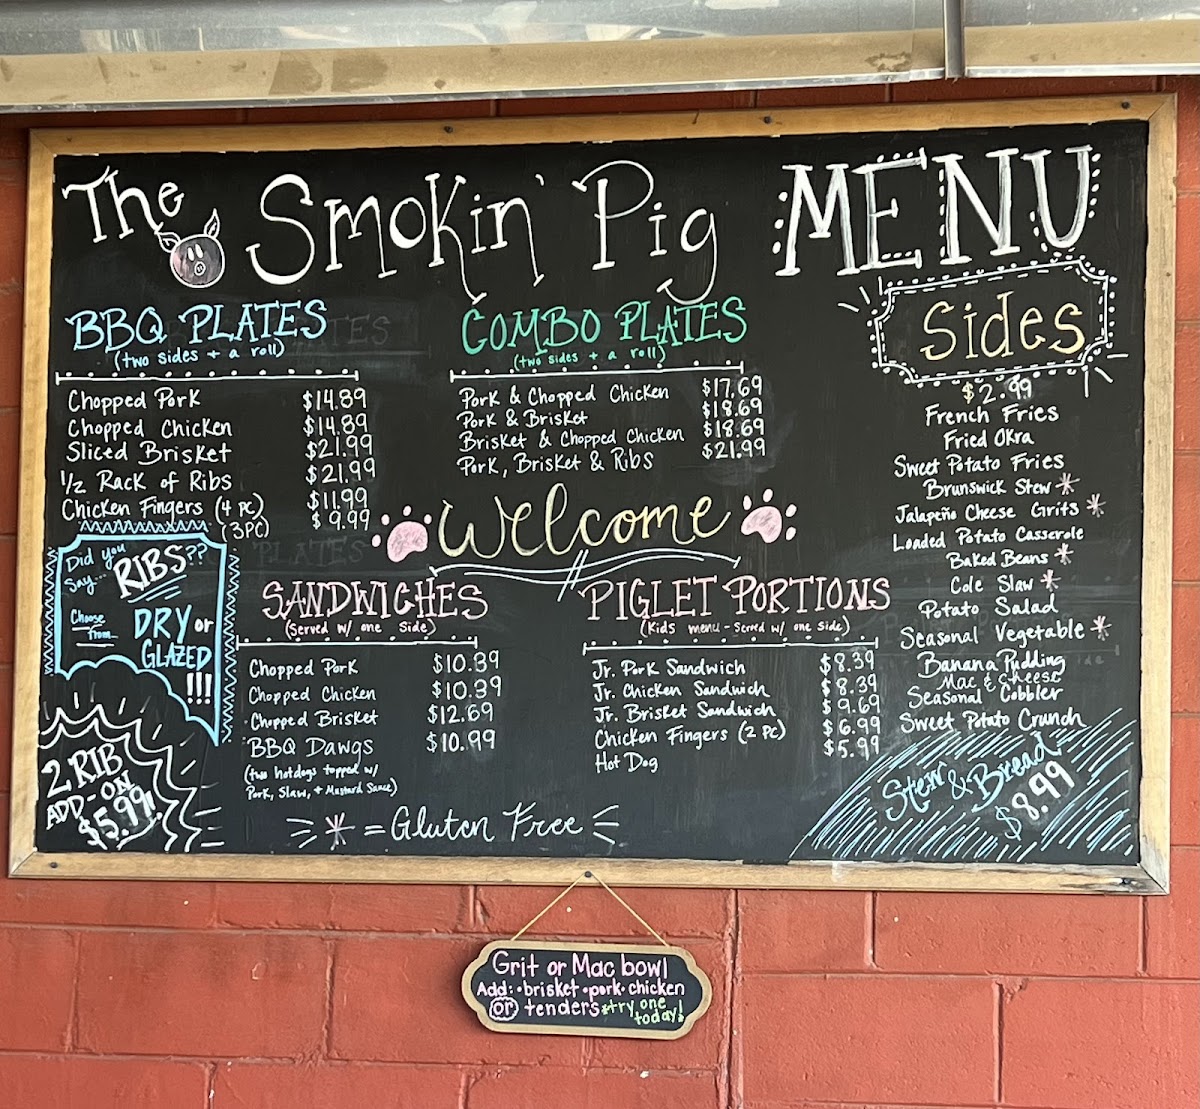 The Smokin' Pig MENU
BBQ PLATES
(two sides + a roll)
Chopped Pork $14.89
Chopped Chicken $14.89
Sliced Brisket $21.99
1/2 Rack of Ribs $21.99
Chicken Fingers (4 PC) $11.99
(3PC) $9.99
COMBO PLATES
(two sides + a roll)
Pork & Chopped Chicken $17.69
Pork & Brisket $18.69
Brisket & Chopped Chicken $18.69
Pork, Brisket & Ribs $21.99
Sides
$2.99
French Fries
Fried Okra
Sweet Potato Fries
Brunswick Stew *
Jalapeño Cheese Grits *
Loaded Potato Casserole
Baked Beans *
Cole Slaw *
Potato Salad
Seasonal Vegetable *
Banana Pudding
Mac & Cheese
Seasonal Cobbler
Sweet Potato Crunch
Stew & Bread
$8.99
Welcome
Did you
Say...
RIBS??
Choose
from
DRY or
GLAZED
!!!
2 RIB
ADD-ON
$5.99!
SANDWICHES
(Served w/ one side)
Chopped Pork $10.39
Chopped Chicken $10.39
Chopped Brisket $12.69
BBQ Dawgs $10.99
(two hotdogs topped w/
Pork, Slaw, + Mustard Sauce)
PIGLET PORTIONS
(Kids menu - Served w/ one side)
Jr. Pork Sandwich $8.39
Jr. Chicken Sandwich $8.39
Jr. Brisket Sandwich $9.69
Chicken Fingers (2 PC) $6.99
Hot Dog $5.99
* = Gluten Free
Grit or Mac bowl
Add: •brisket •pork• chicken
or tenders *try one
today!